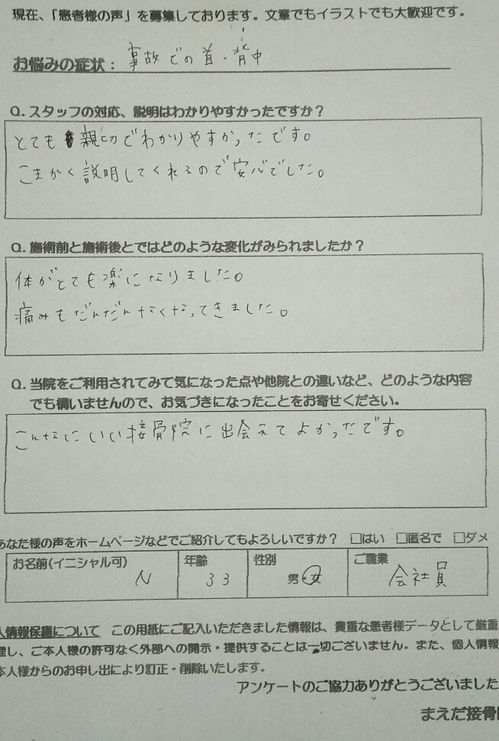 現在、「患者様の声」を募集しております。文章でもイラストでも大歓迎です。
お悩みの症状： 事故での首・背中
Q. スタッフの対応、説明はわかりやすかったですか？
とても親切でわかりやすかったです。
こまかく説明してくれるので安心でした。
Q. 施術前と施術後とではどのような変化がみられましたか？
体がとても楽になりました。
痛みもだんだんなくなってきました。
Q. 当院をご利用されてみて気になった点や他院との違いなど、どのような内容
でも構いませんので、お気づきになったことをお寄せください。
こんなにいい接骨院に出会えてよかったです。
あなた様の声をホームページなどでご紹介してもよろしいですか？ □はい □匿名で □ダメ
お名前(イニシャル可) 年齢 性別 ご職業
N 33 男・女 会社員
人情報保護について この用紙にご記入いただきました情報は、貴重な患者様データとして厳重
理し、ご本人様の許可なく外部への開示・提供することは一切ございません。また、個人情報
本人様からのお申し出により訂正・削除いたします。
アンケートのご協力ありがとうございました
まえだ接骨